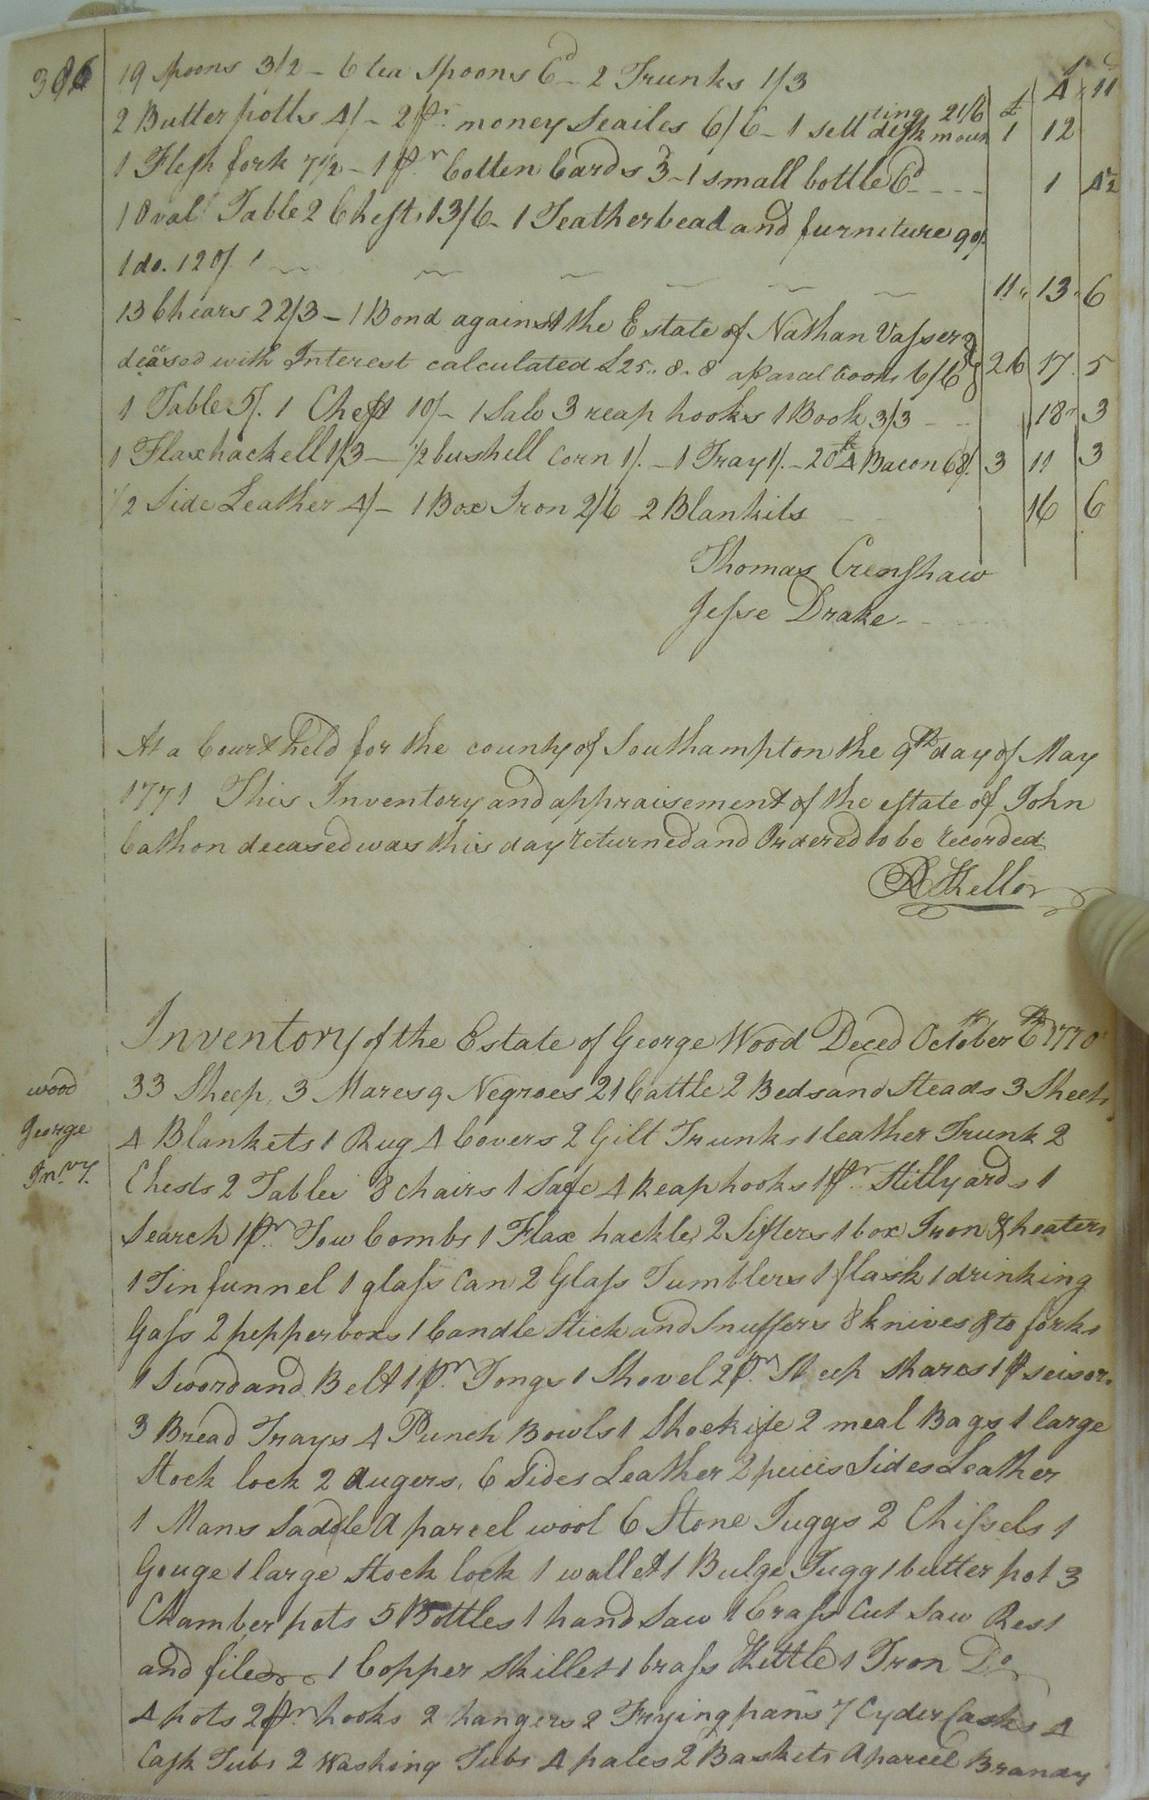 386
19 Spoons 3/2 – 6 tea Spoons 6d – 2 Trunks 1/3 4 11
2 Butter potts 4/ – 2 pr. money Scailes 6/6 – 1 sett desk moun
ting 21/6 £ 1 12
1 Flesh fork 7½ – 1 pr Cotten Cards 3 – 1 small bottle 6d 1 4½
1 Oval Table 2 Chests 13/6 – 1 Featherbead and furniture 90/.
1 do. 120/ 11 13 6
13 Chears 22/3 – 1 Bond against the Estate of Nathan Vasser
deceased with Interest calculated £25.. 8.. 8 a parcel books 6/6 26 17 5
1 Table 5/. 1 Chest 10/ – 1 Saw 3 reap hooks 1 Book 3/3 18 3
1 Flax hackell 1/3 – ½ bushell Corn 1/. – 1 Tray 1/. – 204 Bacon 68/. 3 11 3
½ Side Leather 4/ – 1 Box Iron 2/6 2 Blankits 16 6
Thomas Crenshaw
Jesse Drake
At a Court held for the county of Southampton the 9th day of May
1771 This Inventory and appraisement of the estate of John
Cathon deceased was this day returned and Ordered to be recorded
R Kello
Inventory of the Estate of George Wood Deced October 6th 1770
wood
George
Inv.y.
33 Sheep, 3 Mares 9 Negroes 21 Cattle 2 Beds and Steads 3 Sheets
4 Blankets 1 Rug 4 Covers 2 Gilt Trunks 1 leather Trunk 2
Chests 2 Tables 8 chairs 1 Safe 4 Reap hooks 1 pr. Stillyards 1
Search 1 pr. Tow Combs 1 Flax hackle 2 Sifters 1 box Iron & heaters
1 Tin funnel 1 glass Can 2 Glass Tumblers 1 flask 1 drinking
Gass 2 pepper boxs 1 Candle Stick and Snuffers 8 knives 8 to forks
1 Sword and Belt 1 pr. Tongs 1 Shovel 2 pr. Sheep shares 1 p seisors
3 Bread Trays 4 Punch Bowls 1 2 meal Bags 1 large
Stock lock 2 Augers, 6 Sides Leather 2 peices Sides Leather
1 Mans Saddle A parcel wool 6 Stone Juggs 2 Chissels 1
Gouge 1 large Stock lock 1 wallet 1 Bulge Jugg 1 butter pot 3
Chamber pots 5 Bottles 1 hand Saw 1 Crass Cut Saw Rest
and files 1 Copper Skillet 1 brass Kettle 1 Iron Do
4 pots 2 pr hooks 2 hangers 2 Frying pans 7 Cyder Casks 4
Cask Tubs 2 Washing Tubs 4 pales 2 Baskets A parcel Brandy